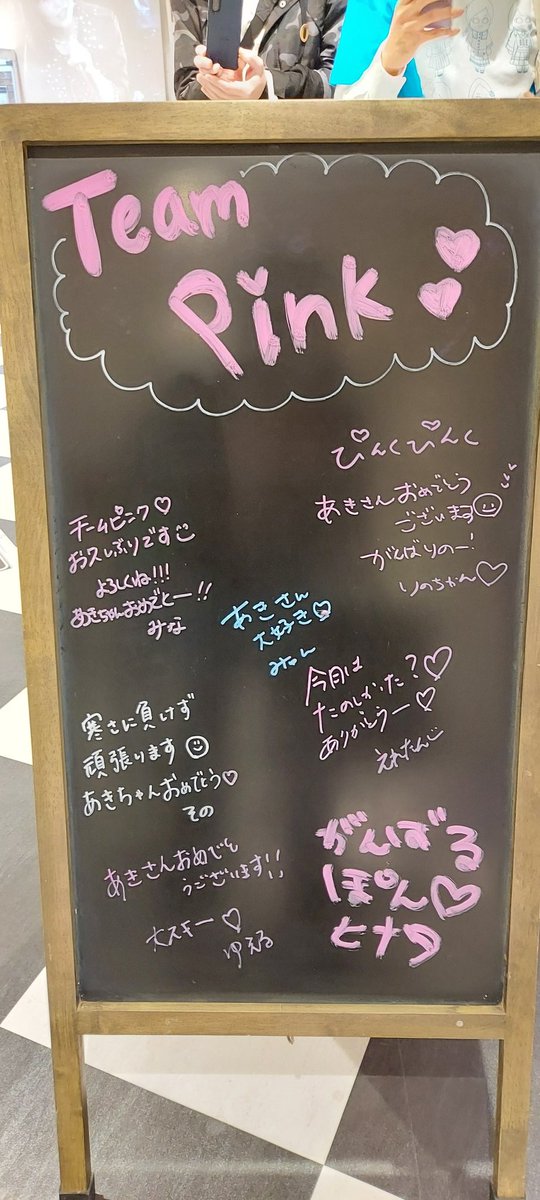 Team
Pink
ぴんくぴんく
あきさんおめでとう
ございます
がんばりのー!
りのちゃん
チームピンク
お久しぶりです
よろしくね!!!
あきちゃんおめでとー!!
みな
あきさん
大好き
みゆん
今日は
たのしかった?
ありがとうー
えれたん
寒さに負けず
頑張ります
あきちゃんおめでとう
その
あきさんおめでと
うございます!!
大スキー
ゆえる
がんばる
ぽん
ヒナタ